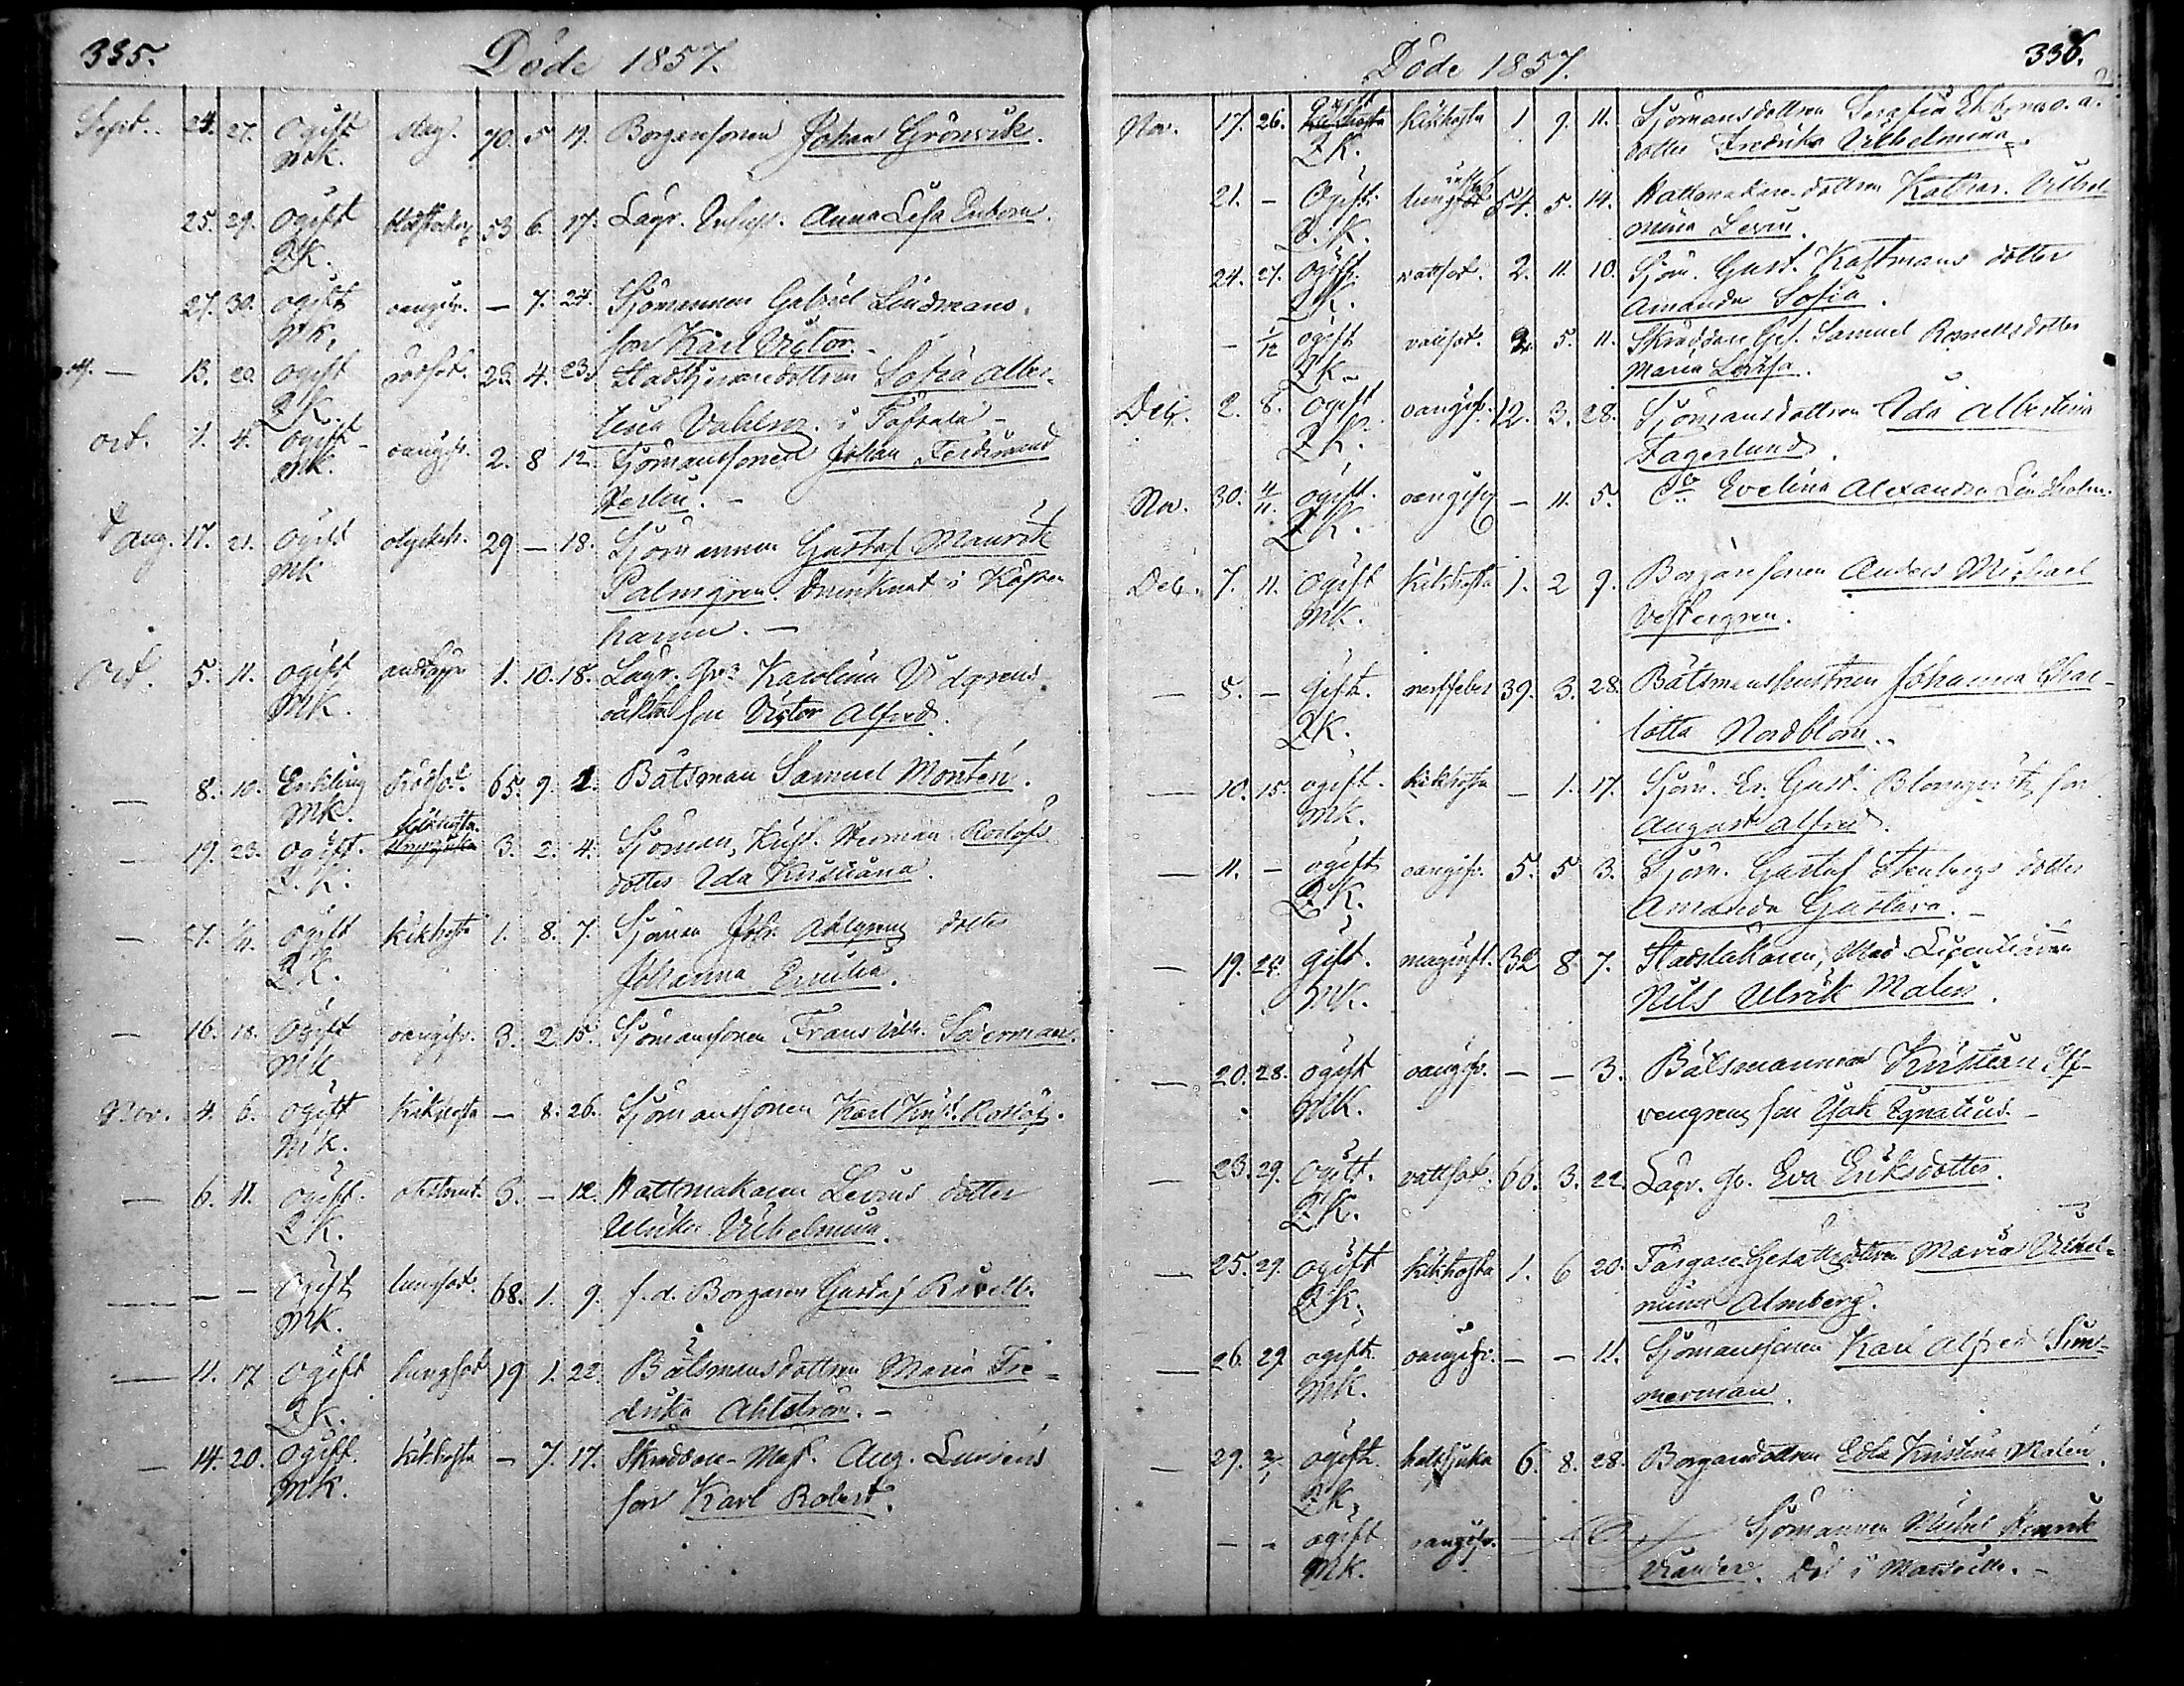 335.
Döde 1857.
Sept. 24. 27. Ogift slag. 70. 5 19. Borgaresonen Johan Grönvik.
MK.
25. 29. Ogift 53 6. 17. Lösgr. Anna Lisa Enbom.
QK.
27. 30. ogift oangifv. — 7. 24. Sjömannen Gabriel Lindmans
MK. son Karl Victor.
— 13. 20. ogift 22. 4. 23. Sofia Alber-
QK. tina Vahlen. i
Oct. 1. 4. ogift oangifv. 2. 8 12. Sjömanssonen Johan Ferdinand
MK. —
Aug. 17. 21. Ogift olyckeh. 29 — 18. Sjömannen Gustaf Maurits
MK Palmgren. Drunknat i Köpen
hamn. —
Oct. 5. 11. ogift andtäppa 1. 10. 18. Karolina Vidgrens
MK. oäkta son Victor Alfred.
— 8. 10. Enkling Rödsot. 65. 9. 2. Båtsman Samuel Montén.
MK.
kikhosta
— 19. 23. Ogift. 3. 2. 4. Sjöman, Krist. Herman Roslofs
Q.K. dotter Ida Kristiana.
— 27. ogift kikhosta 1. 8. 7. Sjöman Joh. Ahlgrens dotter
QK. Johanna Emilia.
— 16. 18. Ogift oangifv. 3. 2. 15. Sjömanssonen Frans Vilh. Söderman.
MK
Nov. 4. 6. ogift kikhosta — 8. 26. Sjömanssonen Karl Krist. Roslöf.
MK.
— 6. 11. ogift. 3. — 12. Hattmakaren Levins dotter
QK. Ulrika Vilhelmina.
— — — Ogift lungsot. 68. 1. 9. f.d. Borgaren Gustaf
MK.
— 11. 17 Ogift lungsot 19 1. 22. Båtsmansdottren Maria Fre=
QK. drika Ahlström. —
— 14. 20. Ogift. kikhosta — 7. 17. Skräddare-Mäst. Aug. Lundéns
MK. son Karl Robert.
336.
Döde 1857.
Nov. 17. 26. ogift kikhosta 1 9. 11. Sjömansdottren Serafia Ekboms o.ä.
QK. dotter Fredrika Vilhelmina.
21. — Ogift. 54. 5. 14. Hattmakaredottren Kathar. Vilhel
Q.K. mina Levin.
24. 27. Ogift. vattsot. 2. 11. 10. Sjöm. Gust. Kastmans dotter
QK. Amanda Sofia.
— 1/12 ogift vattsot. 2. 5. 11. Skräddare Ges. Samuel dotter
QK. Maria Lovisa.
Deb. 2. 8. Ogift oangifv. 12. 3. 28. Sjömansdottren Ida Albertina
QK. Fagerlund.
Nov. 30. 4/11. ogift. oangifv — 11. 5. Do Evelina Alexandra Lindholm.
QK.
Deb. 7. 11. Ogift kikhosta 1. 2 9. Borgaresonen Anders Michael
MK. Vestergren.
— 5. — Gift. nervfeber 39. 3. 28. Båtsmanshustrun Johanna Char-
QK. lotta Nordblom.
— 10. 15. ogift. kikhosta — 1. 17. Sjöm. Er. Gust. Blomqvists son
MK. August Alfred.
— 11. — ogift oangifv. 5. 5 3. Sjöm. Gustaf Stenbergs dotter
QK. Amanda Gustava. —
— 19. 24. gift. maginfl. 32 8. 7. Stadsläkaren, Med. Licentiaten
MK. Nils Ulrik Malin.
— 20. 28. ogift oangifv. — — 3. Båtsmannen Kristian Elf-
MK. vengrens son Isak Ignatius. —
— 23. 29. Ogift. vattsot. 66. 3. 22. Eva Eriksdotter.
QK.
— 25. 29. ogift kikhosta 1. 6 20. Färgare Gesälls dottren Maria Vilhel=
QK. mina Almberg.
— 26. 29. ogift. oangifv. — — 11. Sjömanssonen Karl Alfred Sim-
MK. merman.
— 29. 2/1 ogift. halssjuka 6. 8. 28. Borgaredottren Edla Kristina Malén.
QK.
— — ogift oangifv. — Sjömannen Michel Henrik
MK. Vrander. Död i Marseille. —